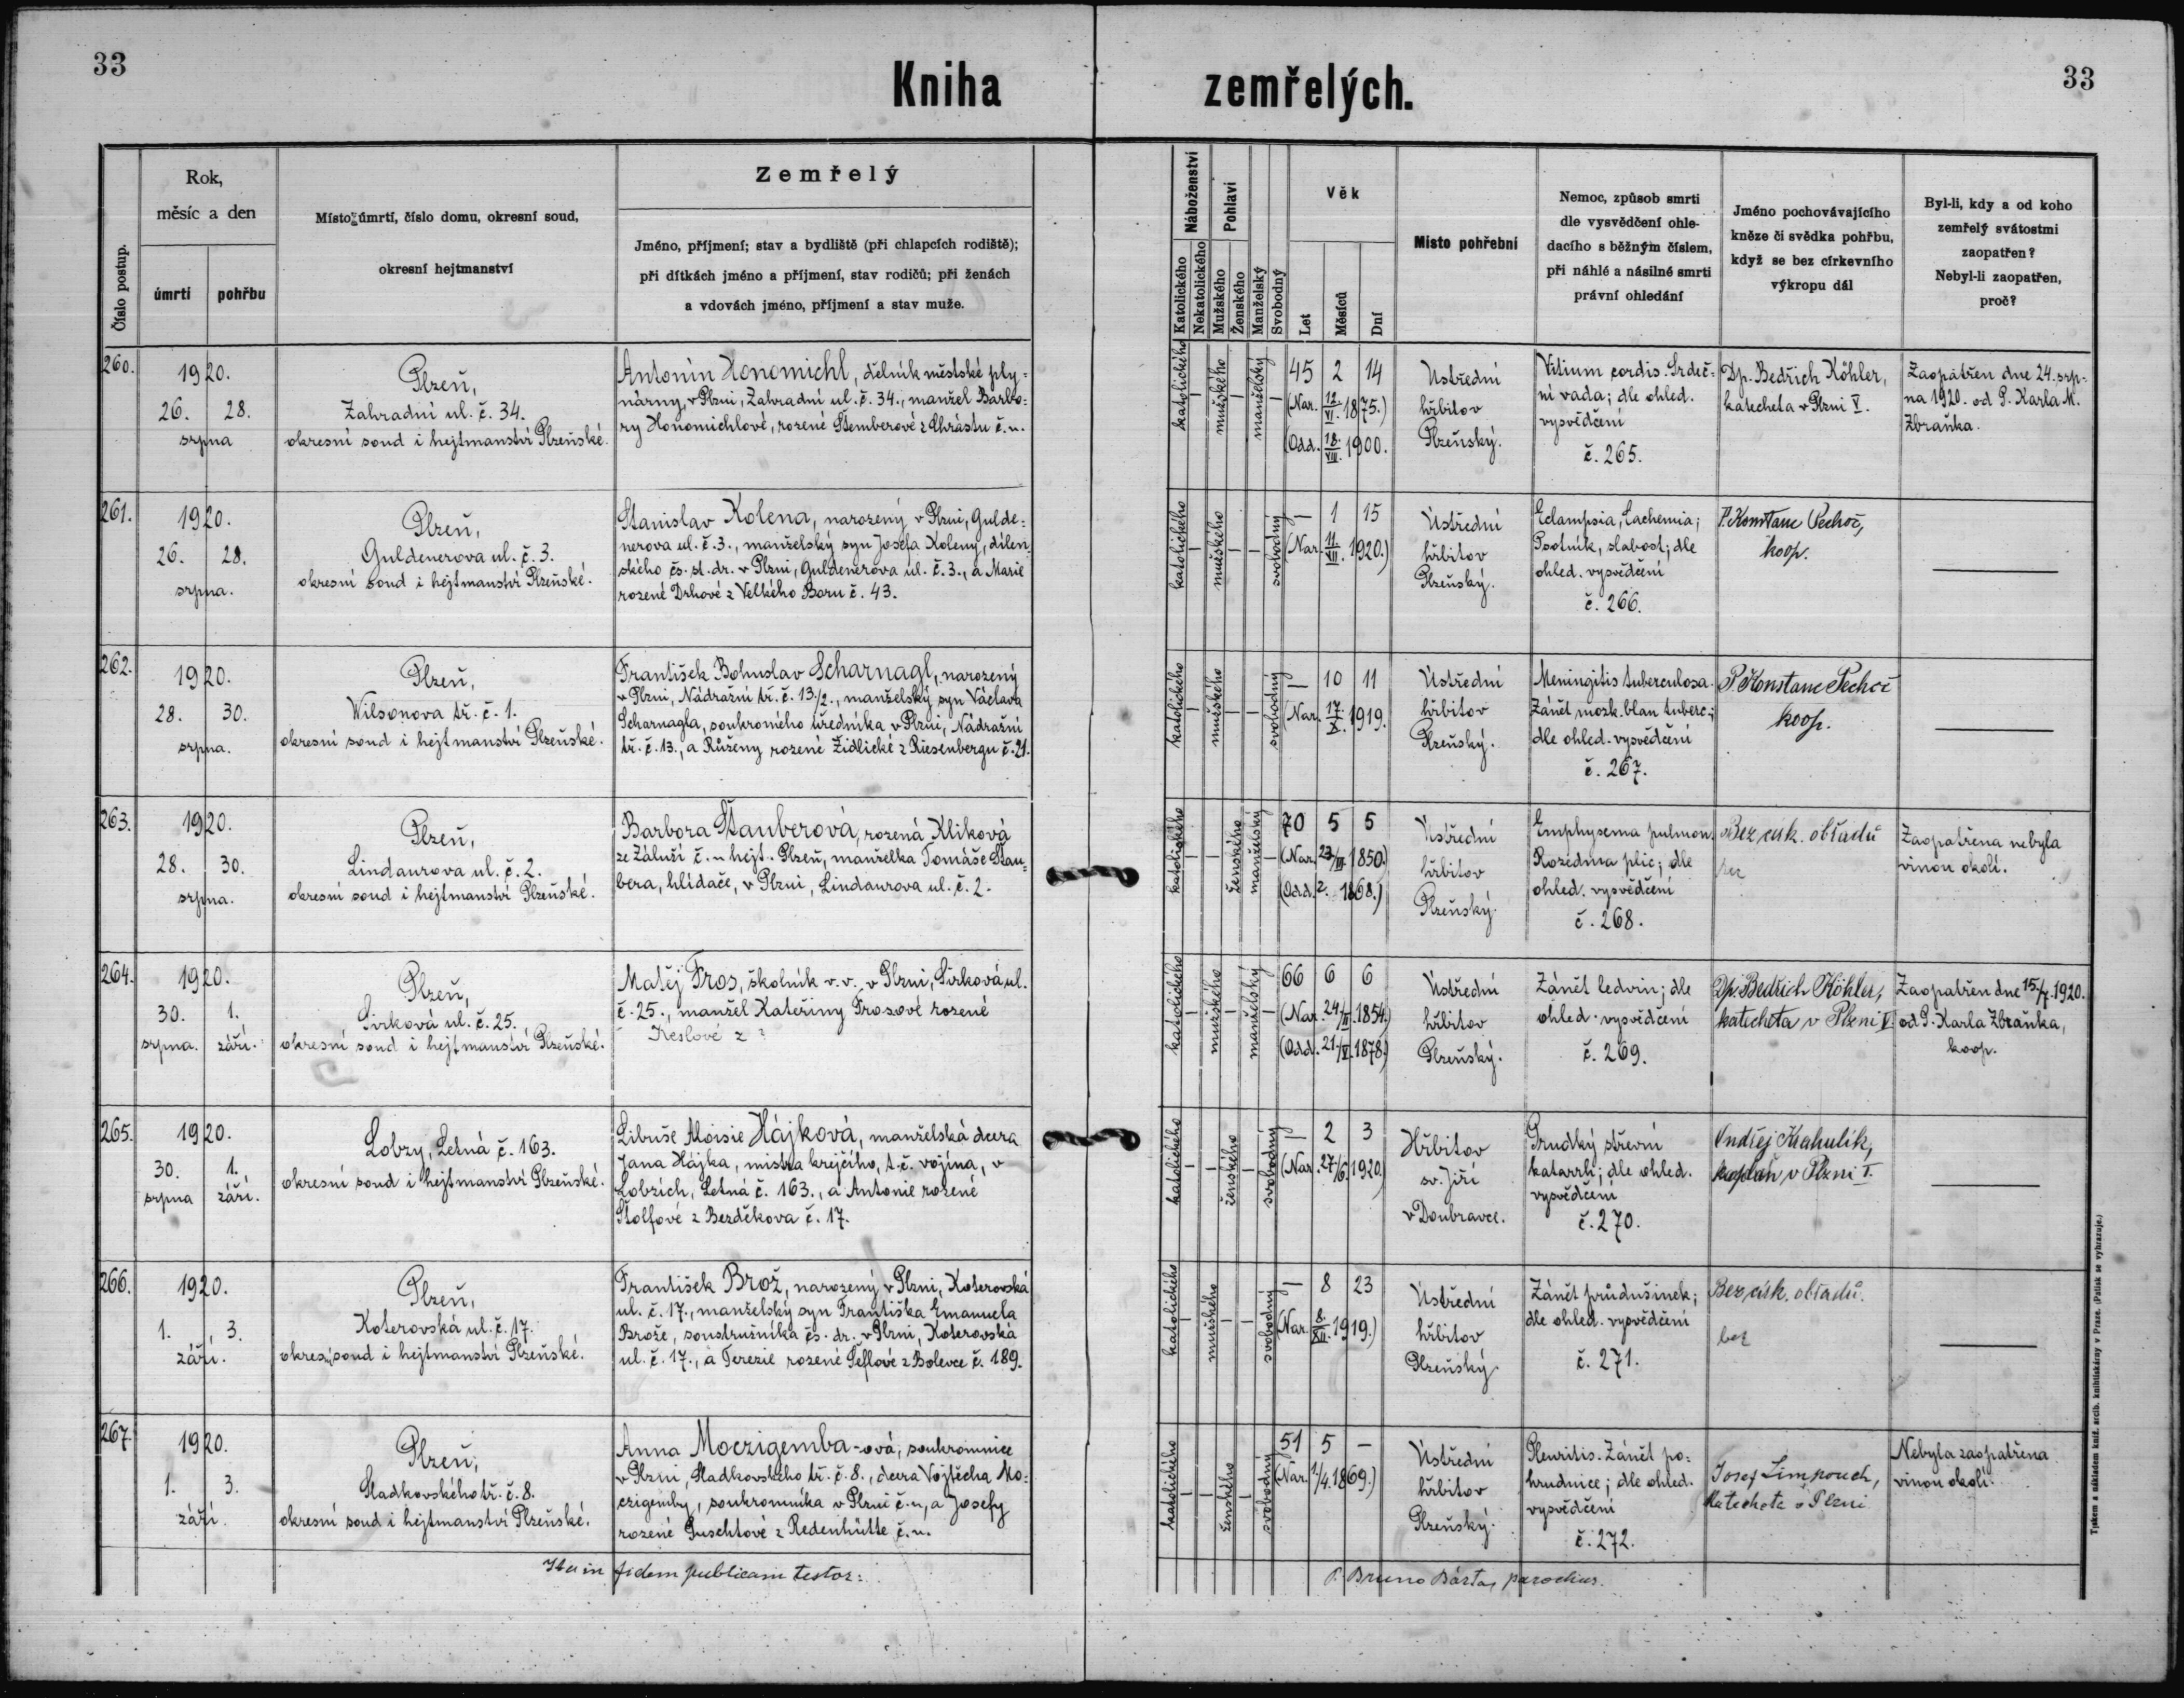 33
33
Kniha zemřelých.
Číslo postup.
Rok,
měsíc a den
úmrtí
pohřbu
Místo úmrtí, číslo domu, okresní soud,
okresní hejtmanství
Zemřelý
Jméno, příjmení; stav a bydliště (při chlapcích rodiště);
při dítkách jméno a příjmení, stav rodičů; při ženách
a vdovách jméno, příjmení a stav muže.
Náboženství
Katolického
Nekatolického
Pohlaví
Mužského
Ženského
Manželský
Svobodný
Věk
Let
Měsíců
Dní
Místo pohřební
Nemoc, způsob smrti
dle vysvědčení ohle-
dacího s běžným číslem,
při náhlé a násilné smrti
právní ohledání
Jméno pochovávajícího
kněze či svědka pohřbu,
když se bez církevního
výkropu dál
Byl-li, kdy a od koho
zemřelý svátostmi
zaopatřen?
Nebyl-li zaopatřen,
proč?
260.
1920.
26. 28.
srpna
Plzeň,
Zahradní ul. č. 34.
okresní soud i hejtmanství Plzeňské.
Antonín Honomichl, dělník městské ply-
nárny, v Plzni, Zahradní ul. č. 34., manžel Barbo-
ry Honomichlové, rozené Štemberové z Chrástu č. n.
katolického — mužského — manželský —
45 2 14
(Nar. 12/VI. 1875.)
(Odd. 18/VIII. 1900.
Ústřední
hřbitov
Plzeňský.
Vitium cordis. Srdeč-
ní vada; dle ohled.
vysvědčení
č. 265.
Dp. Bedřich Köhler,
katecheta v Plzni V.
Zaopatřen dne 24. srp-
na 1920. od P. Karla M.
Zbraňka.
261.
1920.
26. 28.
srpna.
Plzeň,
Guldenerova ul. č. 3.
okresní soud i hejtmanství Plzeňské.
Stanislav Kolena, narozený v Plzni, Gulde-
nerova ul. č. 3., manželský syn Josefa Koleny, dílen-
ského čs. st. dr. v Plzni, Guldenerova ul. č. 3., a Marie
rozené Drhové z Velkého Boru č. 43.
katolického — mužského — — svobodný
— 1 15
(Nar. 11/VII. 1920.)
Ústřední
hřbitov
Plzeňský.
Eclampsia, Cachemia;
Psotník, slabost; dle
ohled. vysvědčení
č. 266.
P. Konstanc Pechoč,
koop.
262.
1920.
28. 30.
srpna.
Plzeň,
Wilsonova tř. č. 1.
okresní soud i hejtmanství Plzeňské.
František Bohuslav Scharnagl, narozený
v Plzni, Nádražní tř. č. 13./2., manželský syn Václava
Scharnagla, soukromého úředníka v Plzni, Nádražní
tř. č. 13., a Růženy rozené Židlické z Riesenbergu č. 21.
katolického — mužského — — svobodný
— 10 11
(Nar. 17/X. 1919.)
Ústřední
hřbitov
Plzeňský.
Meningitis tuberculosa.
Zánět mozk. blan tuberc.;
dle ohled. vysvědčení
č. 267.
P. Konstanc Pechoč
koop.
263.
1920.
28. 30.
srpna.
Plzeň,
Lindaurova ul. č. 2.
okresní soud i hejtmanství Plzeňské.
Barbora Štauberová, rozená Kliková
ze Záluží č. n hejt. Plzeň, manželka Tomáše Štau-
bera, hlídače, v Plzni, Lindaurova ul. č. 2.
katolického — — ženského manželský —
70 5 5
(Nar. 23/III 1850.)
(Odd. 2. 1868.)
Ústřední
hřbitov
Plzeňský.
Emphysema pulmon.
Rozedma plic; dle
ohled. vysvědčení
č. 268.
Bez círk. obřadů
bez
Zaopatřena nebyla
vinou okolí.
264.
1920.
30. 1.
srpna. září.
Plzeň,
Sirková ul. č. 25.
okresní soud i hejtmanství Plzeňské.
Matěj Fros, školník v. v., v Plzni, Sirková ul.
č. 25., manžel Kateřiny Frosové rozené
Keslové z ?
katolického — mužského — manželský —
66 6 6
(Nar. 24/II. 1854.)
(Odd. 21/V. 1878.)
Ústřední
hřbitov
Plzeňský.
Zánět ledvin; dle
ohled. vysvědčení
č. 269.
Dp. Bedřich Köhler,
katecheta v Plzni V.
Zaopatřen dne 15/7. 1920.
od P. Karla Zbraňka,
koop.
265.
1920.
30. 1.
srpna září.
Lobzy, Letná č. 163.
okresní soud i hejtmanství Plzeňské.
Libuše Aloisie Hájková, manželská dcera
Jana Hájka, mistra krejčího, t. č. vojína, v
Lobzích, Letná č. 163., a Antonie rozené
Štolfové z Bezděkova č. 17.
katolického — — ženského — svobodný
— 2 3
(Nar. 27/6. 1920.)
Hřbitov
sv. Jiří
v Doubravce.
Prudký střevní
katarrh; dle ohled.
vysvědčení
č. 270.
Ondřej Krahulík,
kaplan v Plzni I.
266.
1920.
1. 3.
září.
Plzeň,
Koterovská ul. č. 17.
okresní soud i hejtmanství Plzeňské.
František Brož, narozený v Plzni, Koterovská
ul. č. 17., manželský syn Františka Emanuela
Brože, soustružníka čs. dr. v Plzni, Koterovská
ul. č. 17., a Terezie rozené Šeflové z Bolevce č. 189.
katolického — mužského — — svobodný
— 8 23
(Nar. 8/XII. 1919.)
Ústřední
hřbitov
Plzeňský.
Zánět průdušinek;
dle ohled. vysvědčení
č. 271.
Bez círk. obřadů.
bez
267.
1920.
1. 3.
září.
Plzeň,
Sladkovského tř. č. 8.
okresní soud i hejtmanství Plzeňské.
Anna Moczigemba-ová, soukromnice
v Plzni, Sladkovského tř. č. 8., dcera Vojtěcha Mo-
czigemby, soukromníka v Plzni č. n, a Josefy
rozené Puschtové z Redenhütte č. n.
katolického — — ženského — svobodný
51 5 —
(Nar. 1/4. 1869.)
Ústřední
hřbitov
Plzeňský.
Pleuritis. Zánět po-
hrudnice; dle ohled.
vysvědčení
č. 272.
Josef Limpouch,
katecheta v Plzni
Nebyla zaopatřena
vinou okolí.
Ita in fidem publicam testor:
P. Bruno Bárta, parochus.
Tiskem a nákladem kníž. arcib. knihtiskárny v Praze. (Patisk se vyhrazuje.)